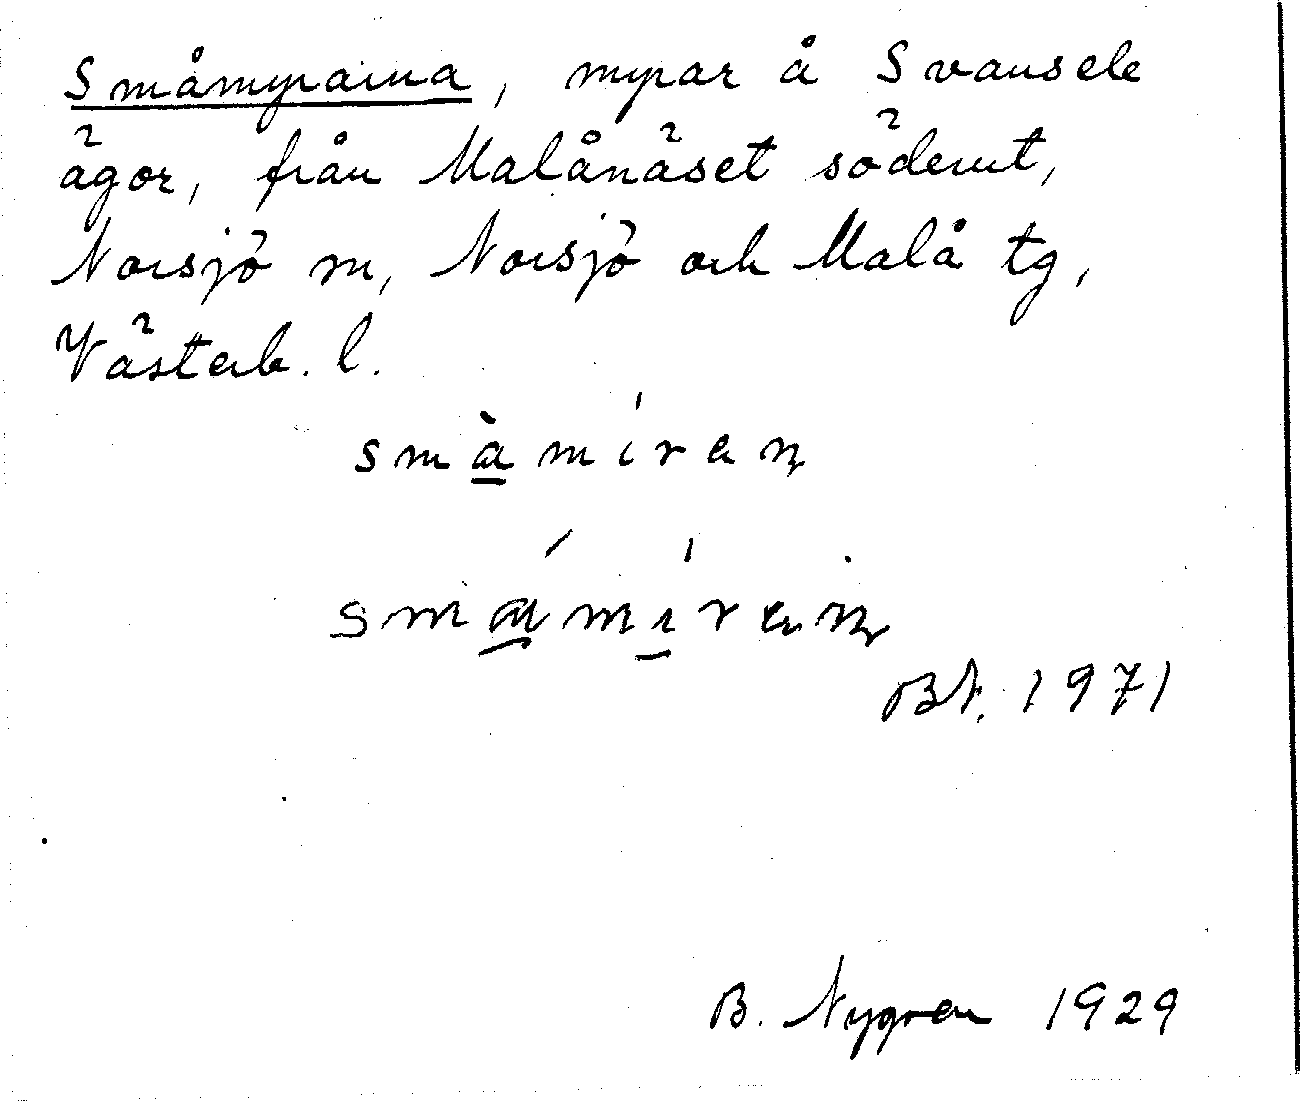 Småmyrarna, myrar å Svansele
ägor, från Malånäset söderut,
Norsjö sn, Norsjö och Malå tg,
Västerb. l.
småmíran
smámíran
BN. 1971
B. Nygren 1929